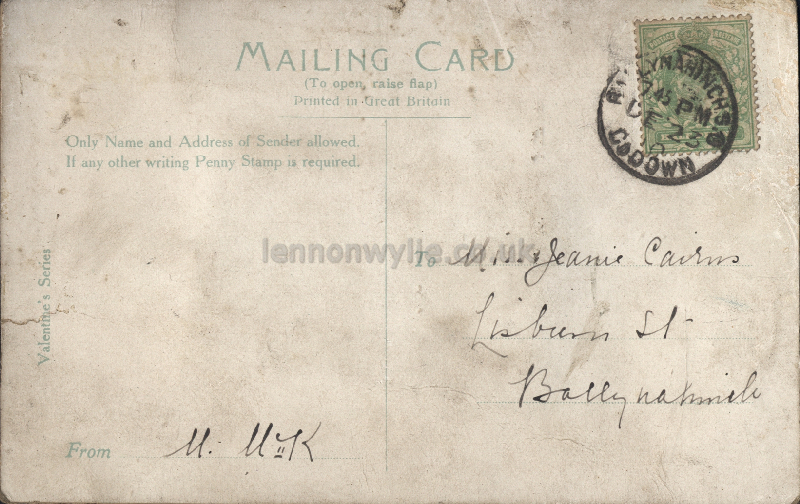 MAILING CARD
(To open, raise flap)
Printed in Great Britain
Only Name and Address of Sender allowed.
If any other writing Penny Stamp is required.
BALLYNAHINCH
7.45 PM
DE 23
Co DOWN
lennonwylie.co.uk
To Miss Jeanie Cairns
Lisburn St
Ballynahinch
Valentine's Series
From M. McK